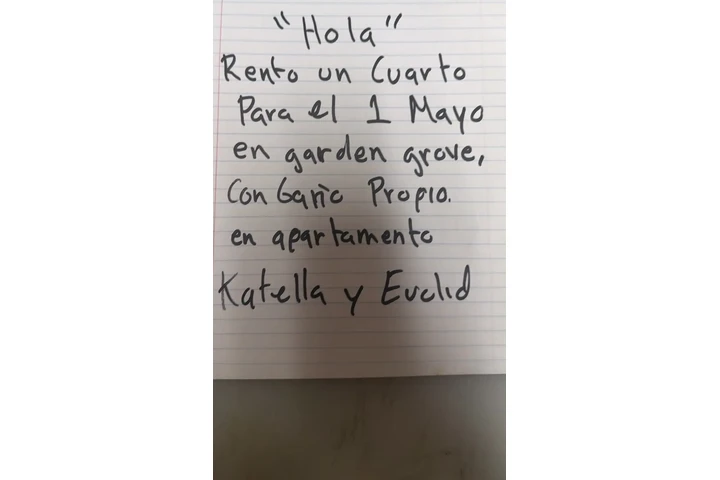 "Hola"
Rento un Cuarto
Para el 1 Mayo
en garden grove,
Con baño Propio.
en apartamento
Katella y Euclid